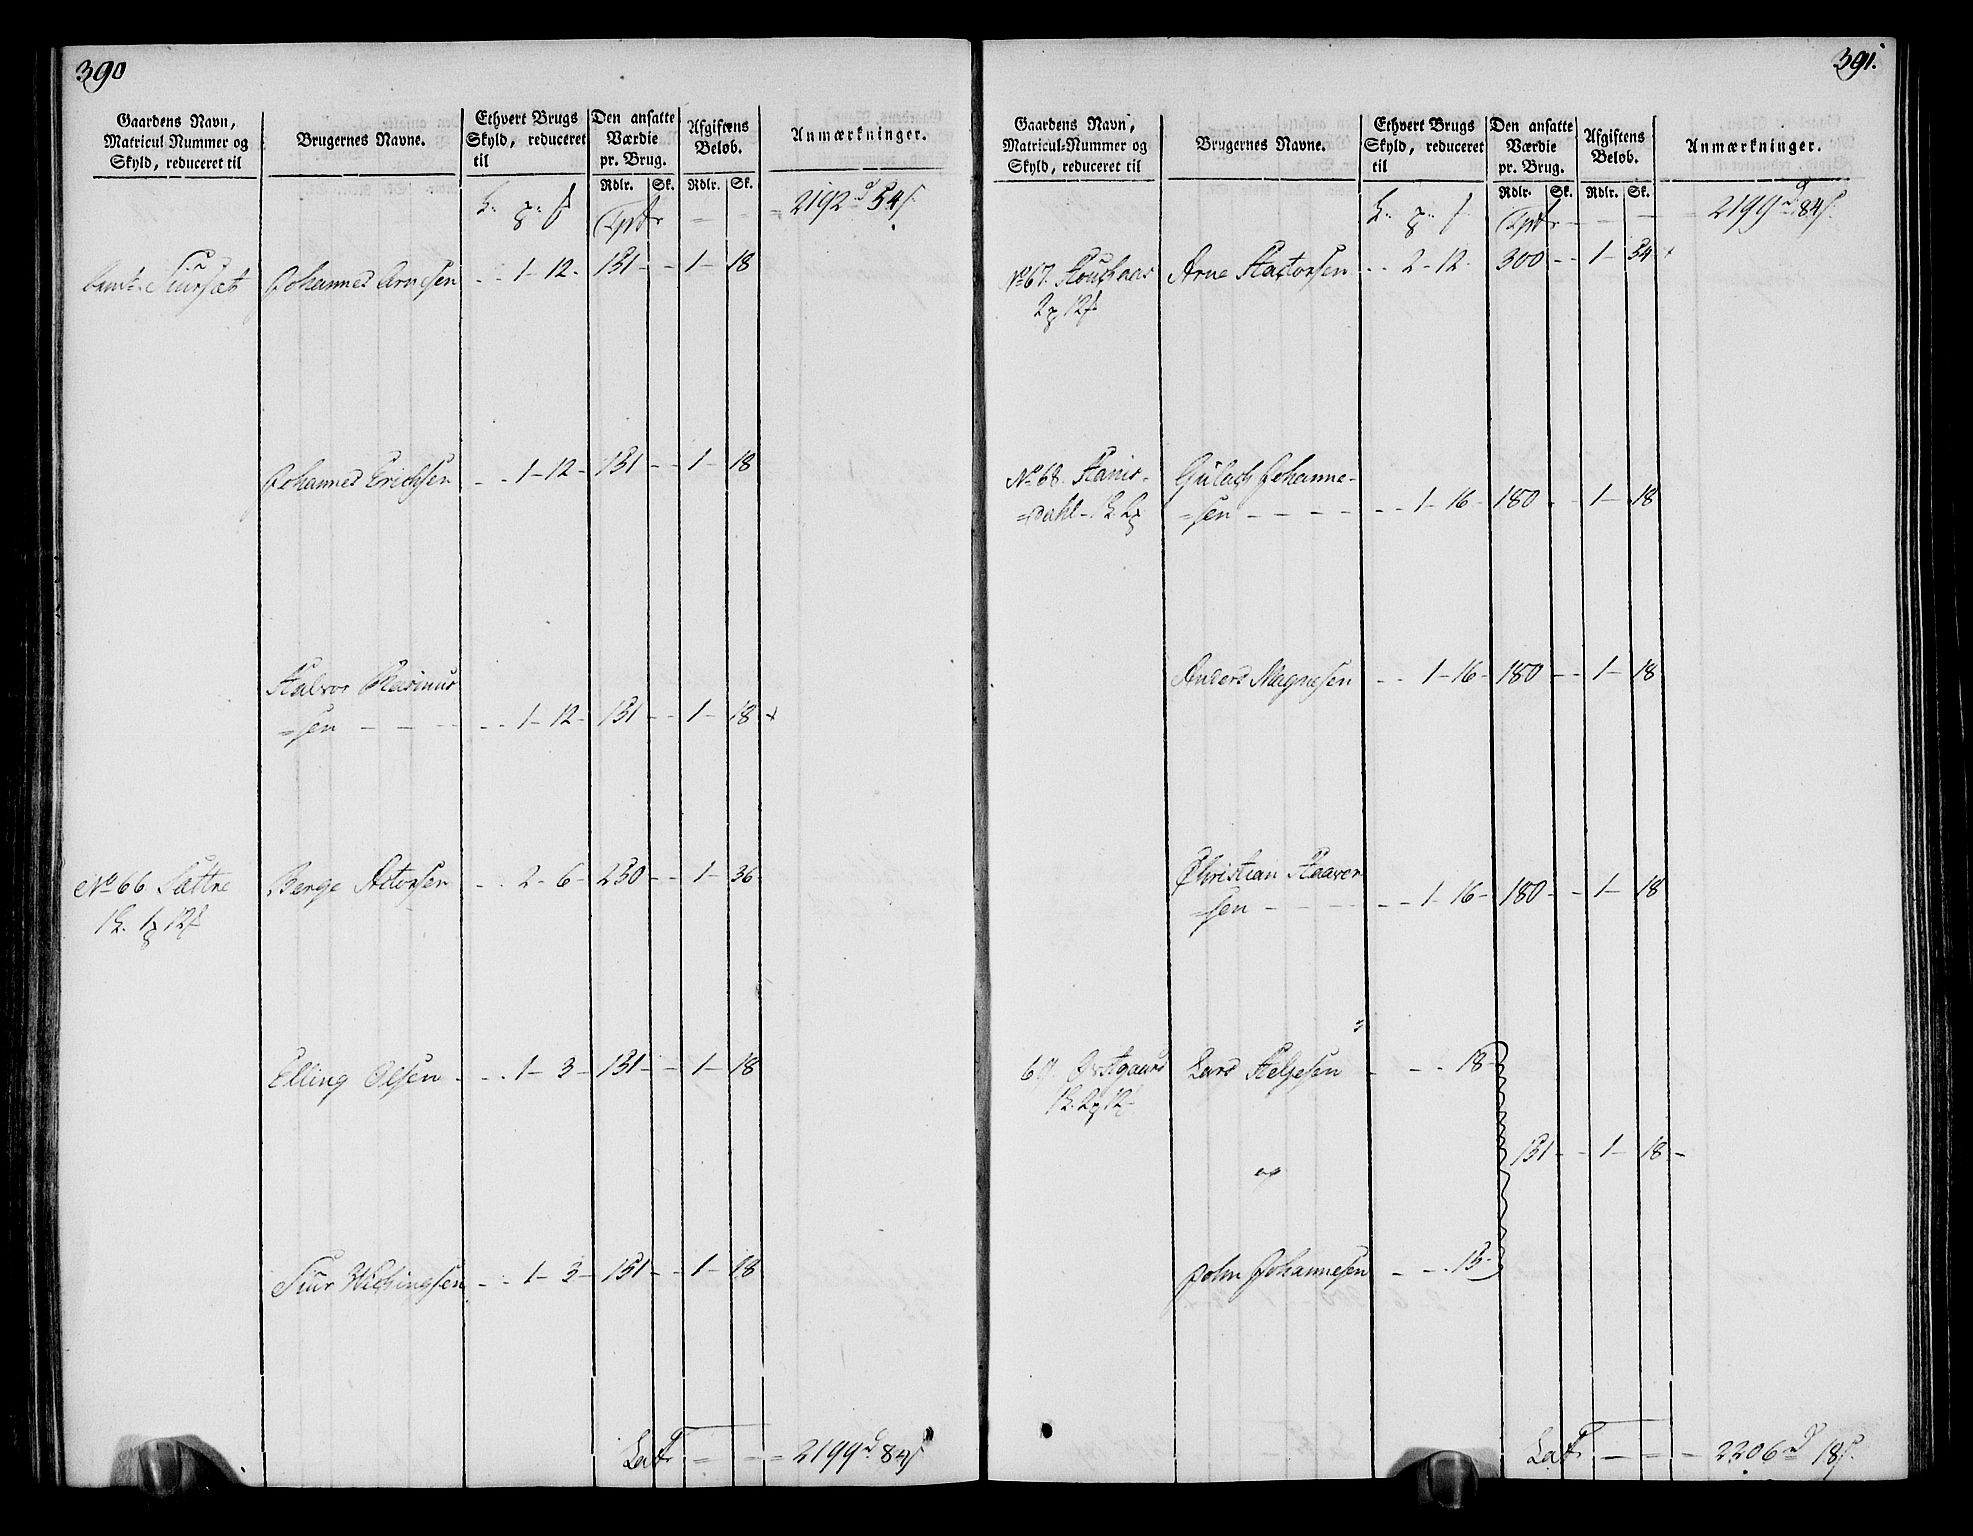 390
Gaardens Navn,
Matricul Nummer og
Skyld, reduceret til
Brugernes Navne.
Ethvert Brugs
Skyld, reduceret
til
Den ansatte
Værdie
pr. Brug.
Rdlr. Sk.
Afgiftens
Beløb.
Rdlr. Sk.
Anmærkninger.
Tpr - - = 2192 d 54 s.
Siursæt Johannes Arnesen - - 1 - 12 - 151 - - 1 - 18
Johannes Erichsen - - 1 - 12 - 151 - - 1 - 18
Halvor Rasmus
=sen - - - - - 1 - 12 - 151 - - 1 - 18
No 66 Sættre Berge Actorsen - - 2 - 6 - 250 - - 1 - 36
Elling Olsen - - - 1 - 3 - 151 - - 1 - 18
Siur Wichingsen - - 1 - 3 - 151 - - 1 - 18
Latr - - = 2199 d 84 s
391.
Gaardens Navn,
Matricul-Nummer og
Skyld, reduceret til
Brugernes Navne.
Ethvert Brugs
Skyld, reduceret
til
Den ansatte
Værdie
pr. Brug.
Rdlr. Sk.
Afgiftens
Beløb.
Rdlr. Sk.
Anmærkninger.
Tpr - - - 2199 d 84 s.
No 67. Arne - - 2 - 12 - 300 - - 1 - 54
No 68. Gulach Johanne-
=dahl =sen - - - - - - 1 - 16 - 180 - - 1 - 18
Anders Magnesen - - 1 - 16 - 180 - - 1 - 18
Christian Haaver
=sen - - - - - 1 - 16 - 180 - - 1 - 18
69 Østgaard Lars Helgesen - - - 18
151 - - 1 - 18 -
og
John Johannesen - - - 15
Latr - - - 2206 d 18 s.